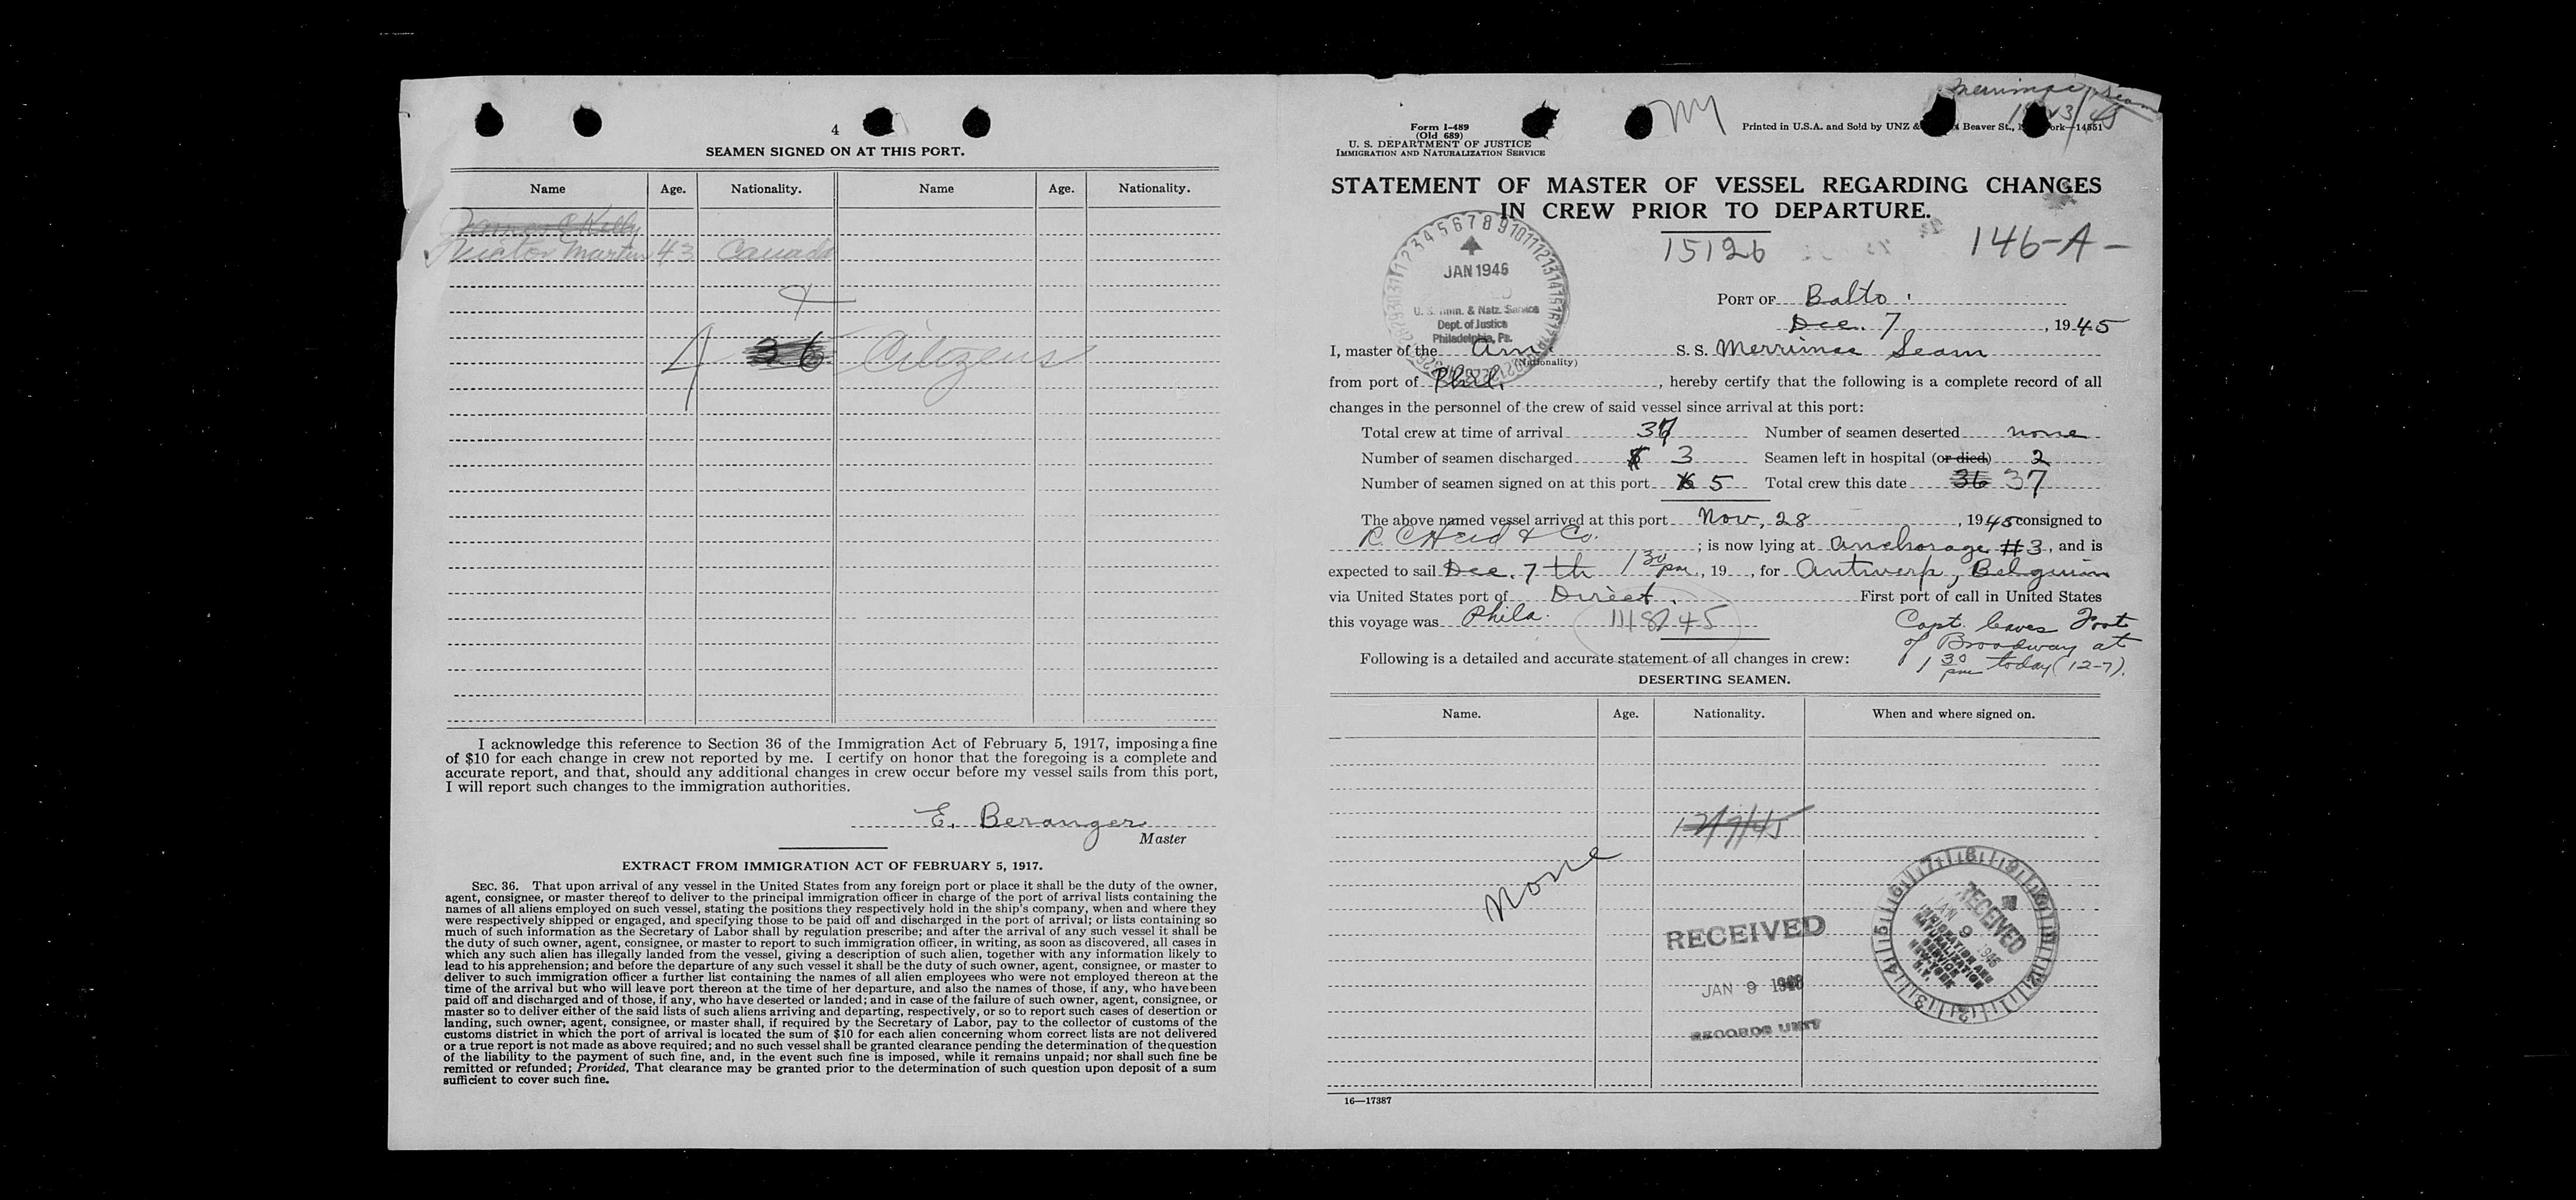 4
SEAMEN SIGNED ON AT THIS PORT.
Name Age. Nationality. Name Age. Nationality.
Martin 43 Canada
4 36 Citizens
I acknowledge this reference to Section 36 of the Immigration Act of February 5, 1917, imposing a fine
of $10 for each change in crew not reported by me. I certify on honor that the foregoing is a complete and
accurate report, and that, should any additional changes in crew occur before my vessel sails from this port,
I will report such changes to the immigration authorities.
E. Beranger
Master
EXTRACT FROM IMMIGRATION ACT OF FEBRUARY 5, 1917.
SEC. 36. That upon arrival of any vessel in the United States from any foreign port or place it shall be the duty of the owner,
agent, consignee, or master thereof to deliver to the principal immigration officer in charge of the port of arrival lists containing the
names of all aliens employed on such vessel, stating the positions they respectively hold in the ship's company, when and where they
were respectively shipped or engaged, and specifying those to be paid off and discharged in the port of arrival; or lists containing so
much of such information as the Secretary of Labor shall by regulation prescribe; and after the arrival of any such vessel it shall be
the duty of such owner, agent, consignee, or master to report to such immigration officer, in writing, as soon as discovered, all cases in
which any such alien has illegally landed from the vessel, giving a description of such alien, together with any information likely to
lead to his apprehension; and before the departure of any such vessel it shall be the duty of such owner, agent, consignee, or master to
deliver to such immigration officer a further list containing the names of all alien employees who were not employed thereon at the
time of the arrival but who will leave port thereon at the time of her departure, and also the names of those, if any, who have been
paid off and discharged and of those, if any, who have deserted or landed; and in case of the failure of such owner, agent, consignee, or
master so to deliver either of the said lists of such aliens arriving and departing, respectively, or so to report such cases of desertion or
landing, such owner, agent, consignee, or master shall, if required by the Secretary of Labor, pay to the collector of customs of the
customs district in which the port of arrival is located the sum of $10 for each alien concerning whom correct lists are not delivered
or a true report is not made as above required; and no such vessel shall be granted clearance pending the determination of the question
of the liability to the payment of such fine, and, in the event such fine is imposed, while it remains unpaid; nor shall such fine be
remitted or refunded; Provided, That clearance may be granted prior to the determination of such question upon deposit of a sum
sufficient to cover such fine.
Merrimac Seam
Form I-489
(Old 689)
U. S. DEPARTMENT OF JUSTICE
IMMIGRATION AND NATURALIZATION SERVICE
NY
Printed in U.S.A. and Sold by UNZ & Beaver St., ork—14551
STATEMENT OF MASTER OF VESSEL REGARDING CHANGES
IN CREW PRIOR TO DEPARTURE.
15126 146-A-
JAN 1946
U. S. Imm. & Natz. Service
Dept. of Justice
Philadelphia, Pa.
PORT OF Balto.
Dec. 7, 1945
I, master of the Am. S. S. Merrimac Seam
(Nationality)
from port of Phil., hereby certify that the following is a complete record of all
changes in the personnel of the crew of said vessel since arrival at this port:
Total crew at time of arrival 37 Number of seamen deserted none
Number of seamen discharged 3 Seamen left in hospital (or died) 2
Number of seamen signed on at this port 5 Total crew this date 36 37
The above named vessel arrived at this port Nov. 28, 1945 consigned to
R. C. & Co.; is now lying at anchorage #3, and is
expected to sail Dec. 7th 1 30 pm, 19, for Antwerp, Belguim
via United States port of Direct. First port of call in United States
this voyage was Phila. 11 18 45
Capt. leaves Foot
of Broadway at
1 30 pm today (12-7).
Following is a detailed and accurate statement of all changes in crew:
DESERTING SEAMEN.
Name. Age. Nationality. When and where signed on.
12/7/45
None
RECEIVED
JAN 9 1946
RECORDS UNIT
RECEIVED
JAN 9 1946
IMMIGRATION AND
NATURALIZATION
SERVICE
NEW YORK
N.Y.
16—17387